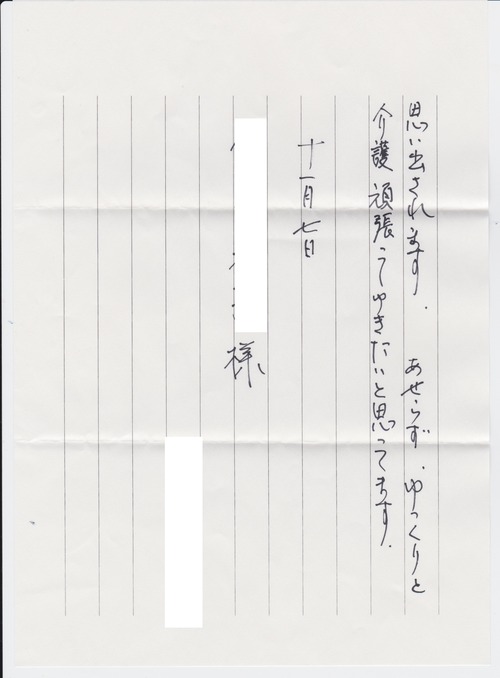 思い出されます。 あせらず、ゆっくりと
介護頑張ってゆきたいと思ってます。
十一月七日
様